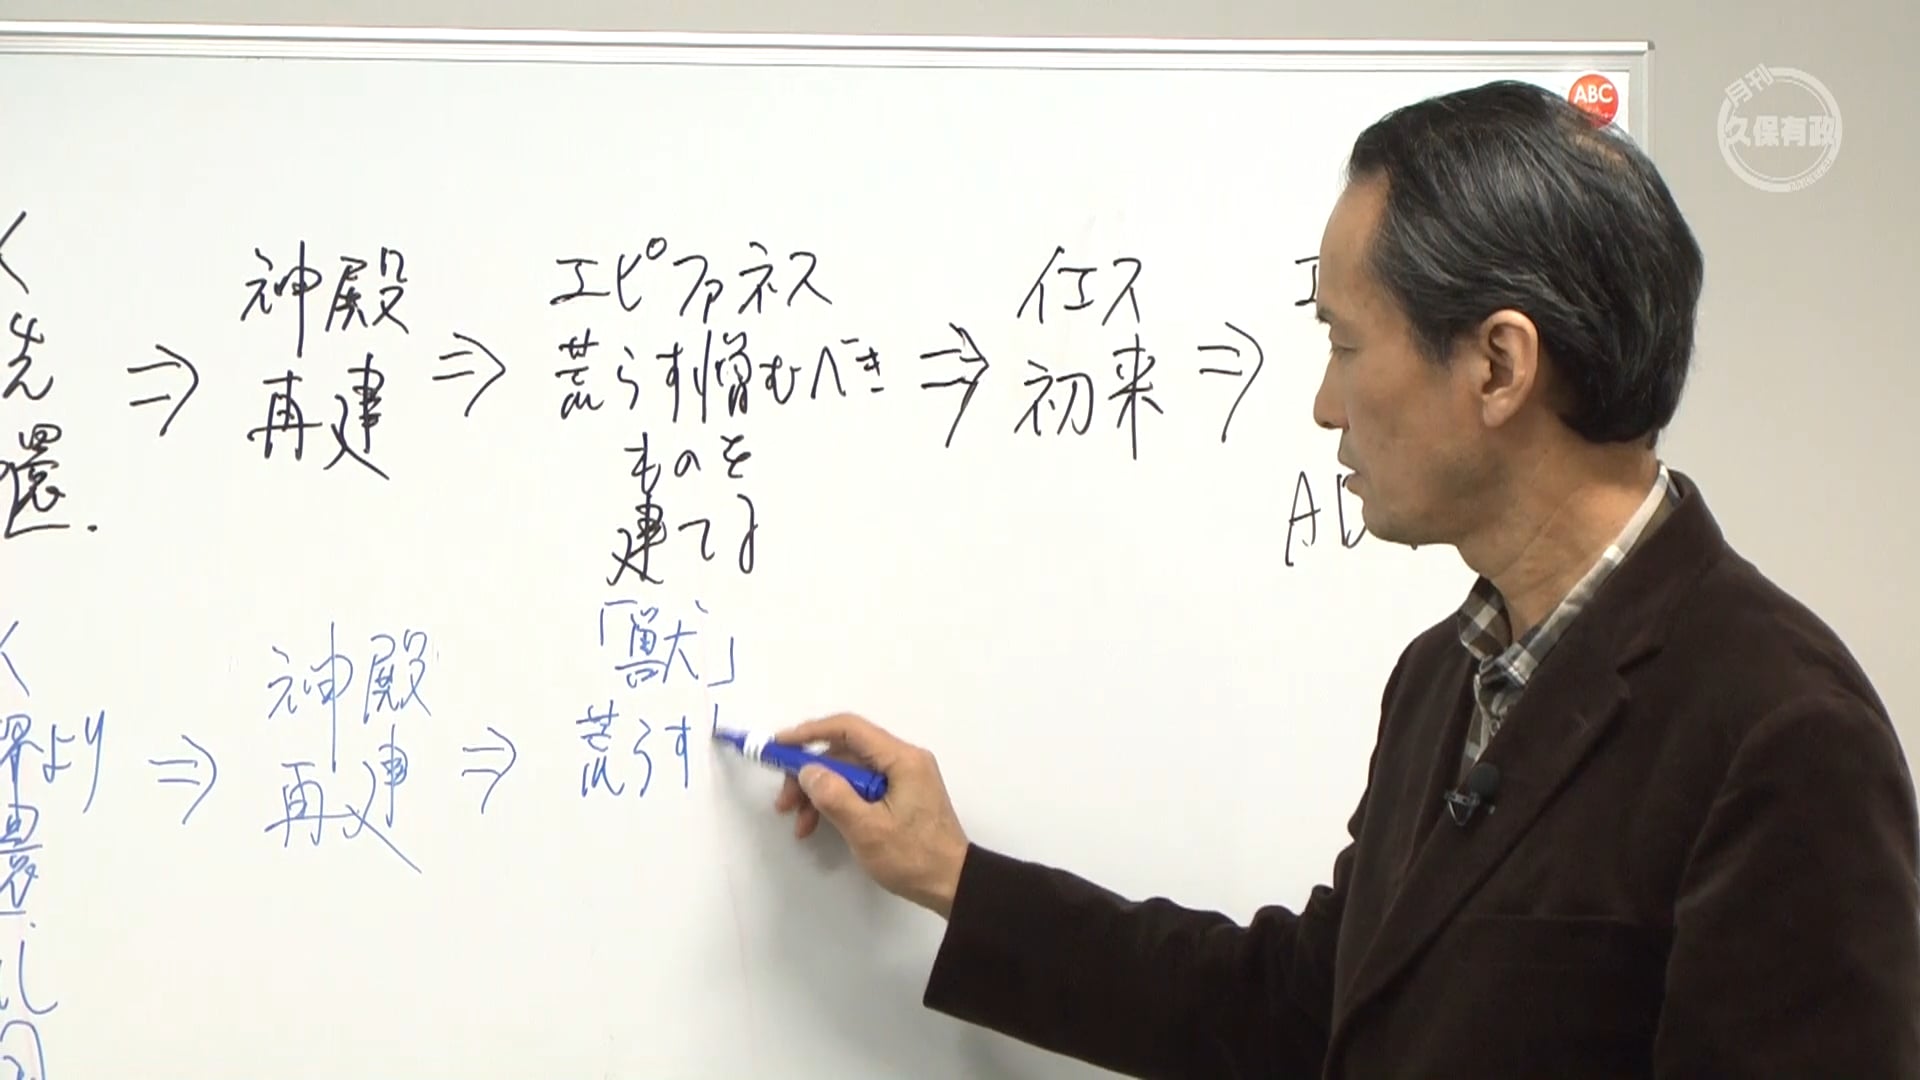 神殿
再建
エピファネス
荒らす憎むべき
ものを
建てる
イエス
初来
AD
先
還.
神殿
再建
「獣」
荒らす
より
還.
ABC
月刊
久保有政